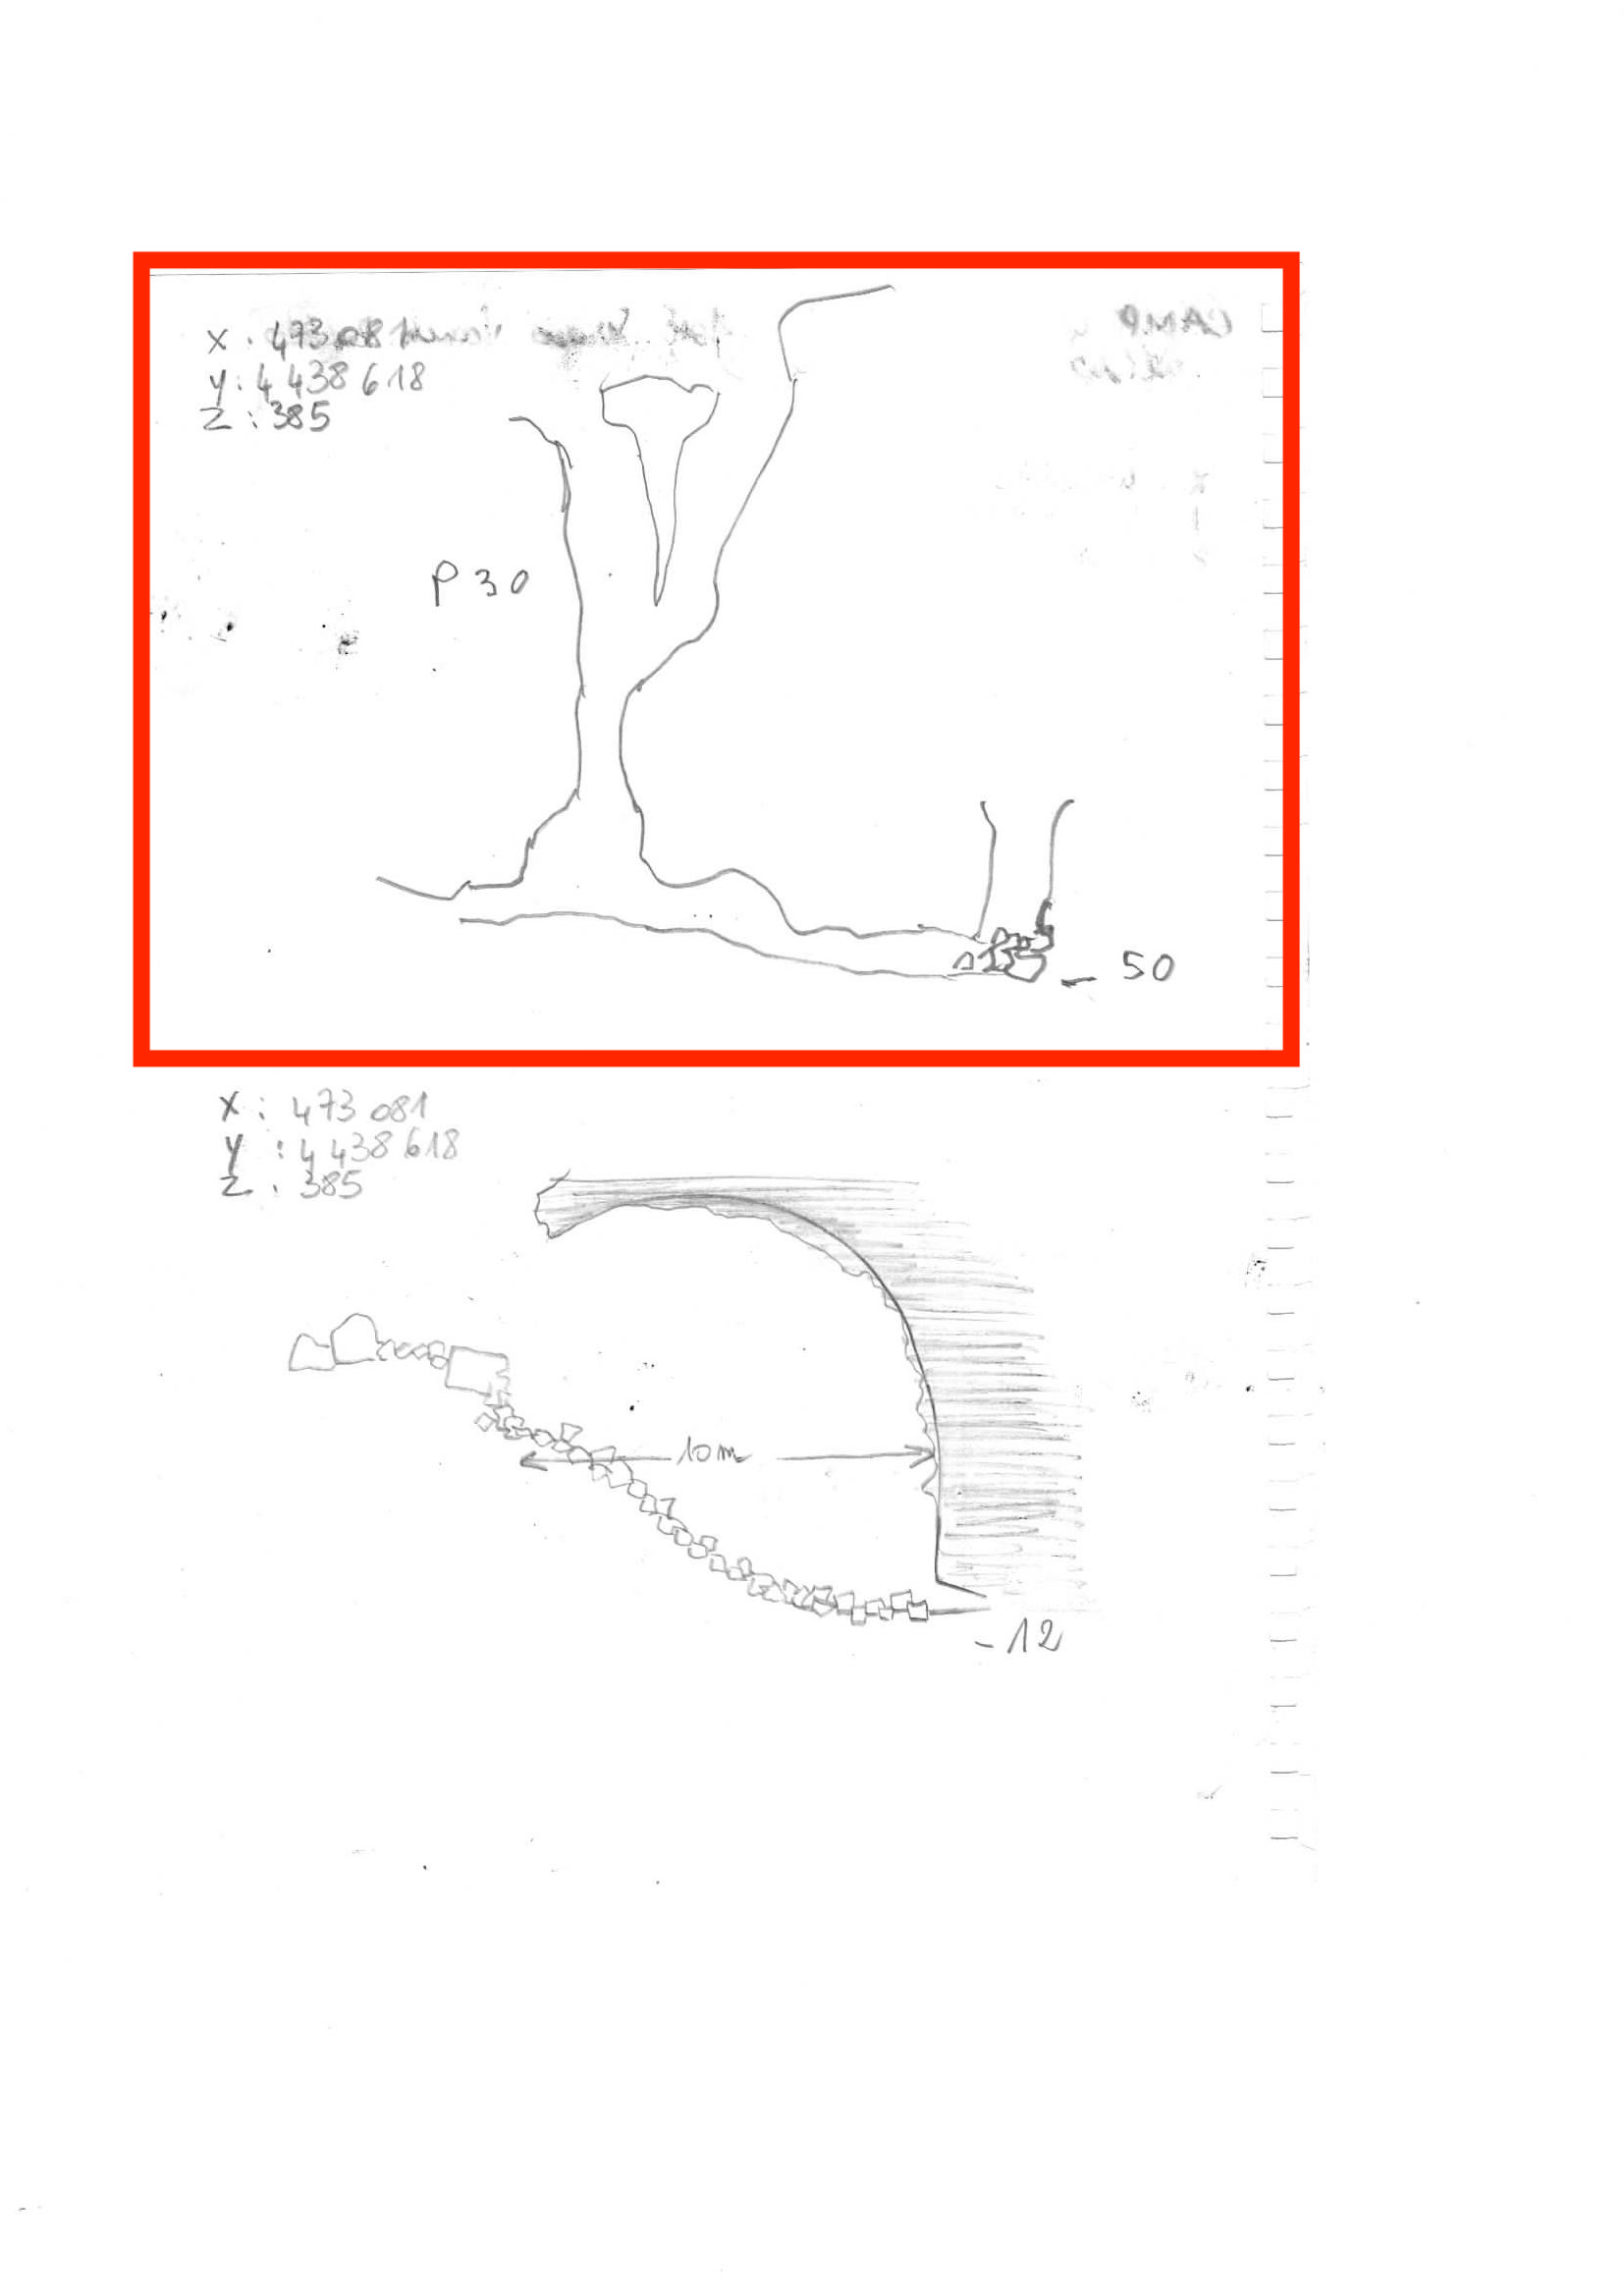 X: 473081
y: 4 438 618
Z: 385
P 30
- 50
X: 473 081
y: 4 438 618
Z: 385
10 m
- 12